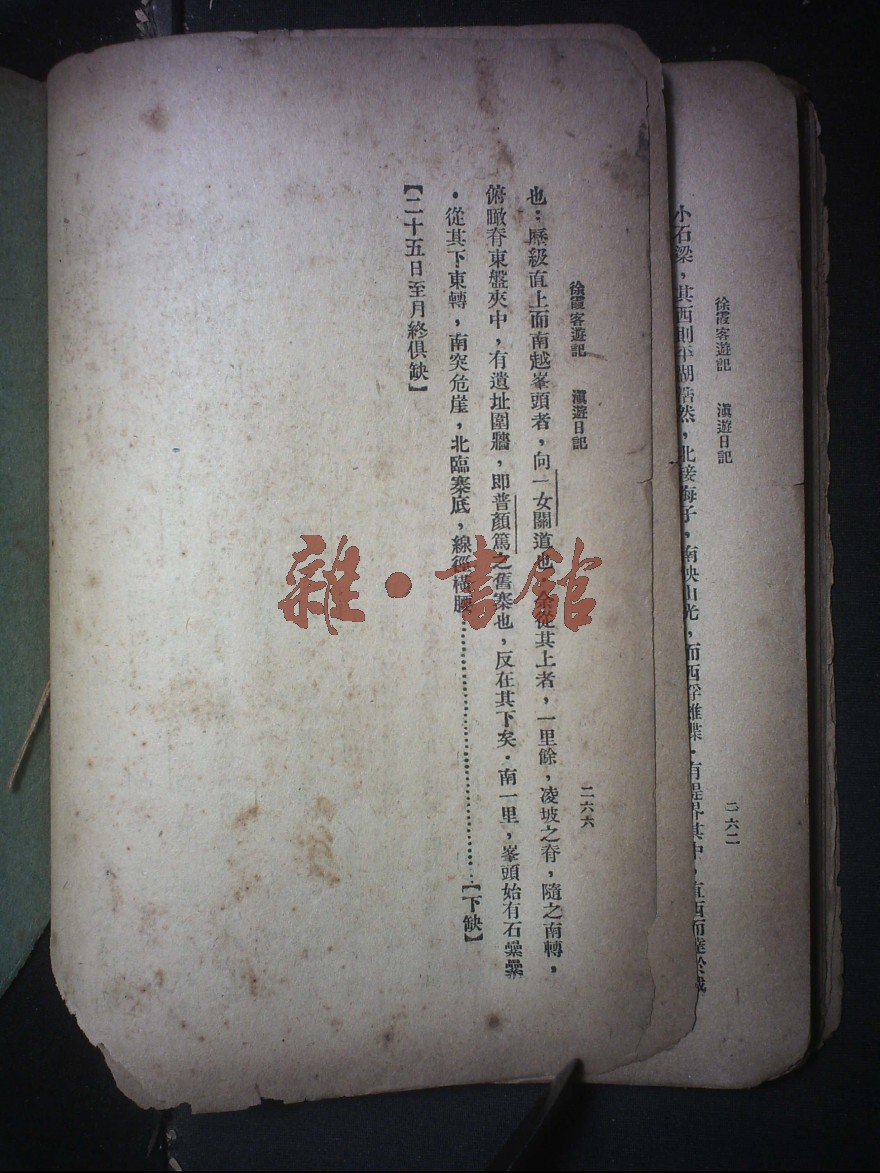 小石梁，其西則平湖浩然，北接海子，南映山光，而西浮雉堞．有堤界其中，直西而達於城
徐霞客遊記 滇遊日記 二六二
徐霞客遊記 滇遊日記 二六六
也：歷級直上而南越峯頭者，向一女關道也，余從其上者，一里餘，凌坡之脊，隨之南轉，
俯瞰脊東盤夾中，有遺址圍牆，即普顏篤之舊寨也，反在其下矣．南一里，峯頭始有石纍纍
．從其下東轉，南突危崖，北臨寨底，線徑橫腰………………………【下缺】
【二十五日至月終俱缺】
雜·書館